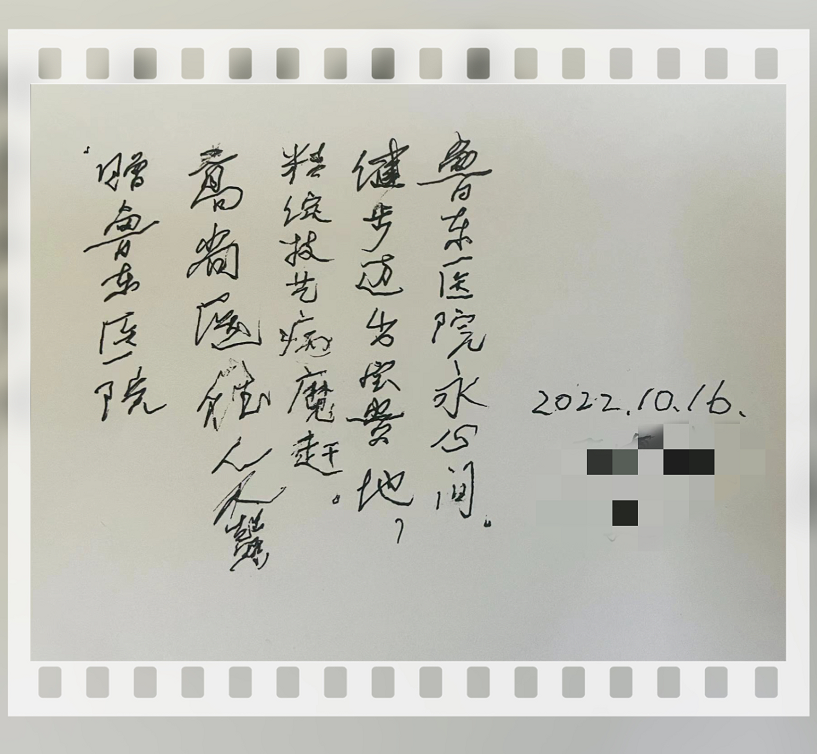 赠鲁东医院
高尚医德人人赞
精绽技艺病魔赶。
健步迈出宝贵地,
鲁东医院永心间.
2022.10.16.